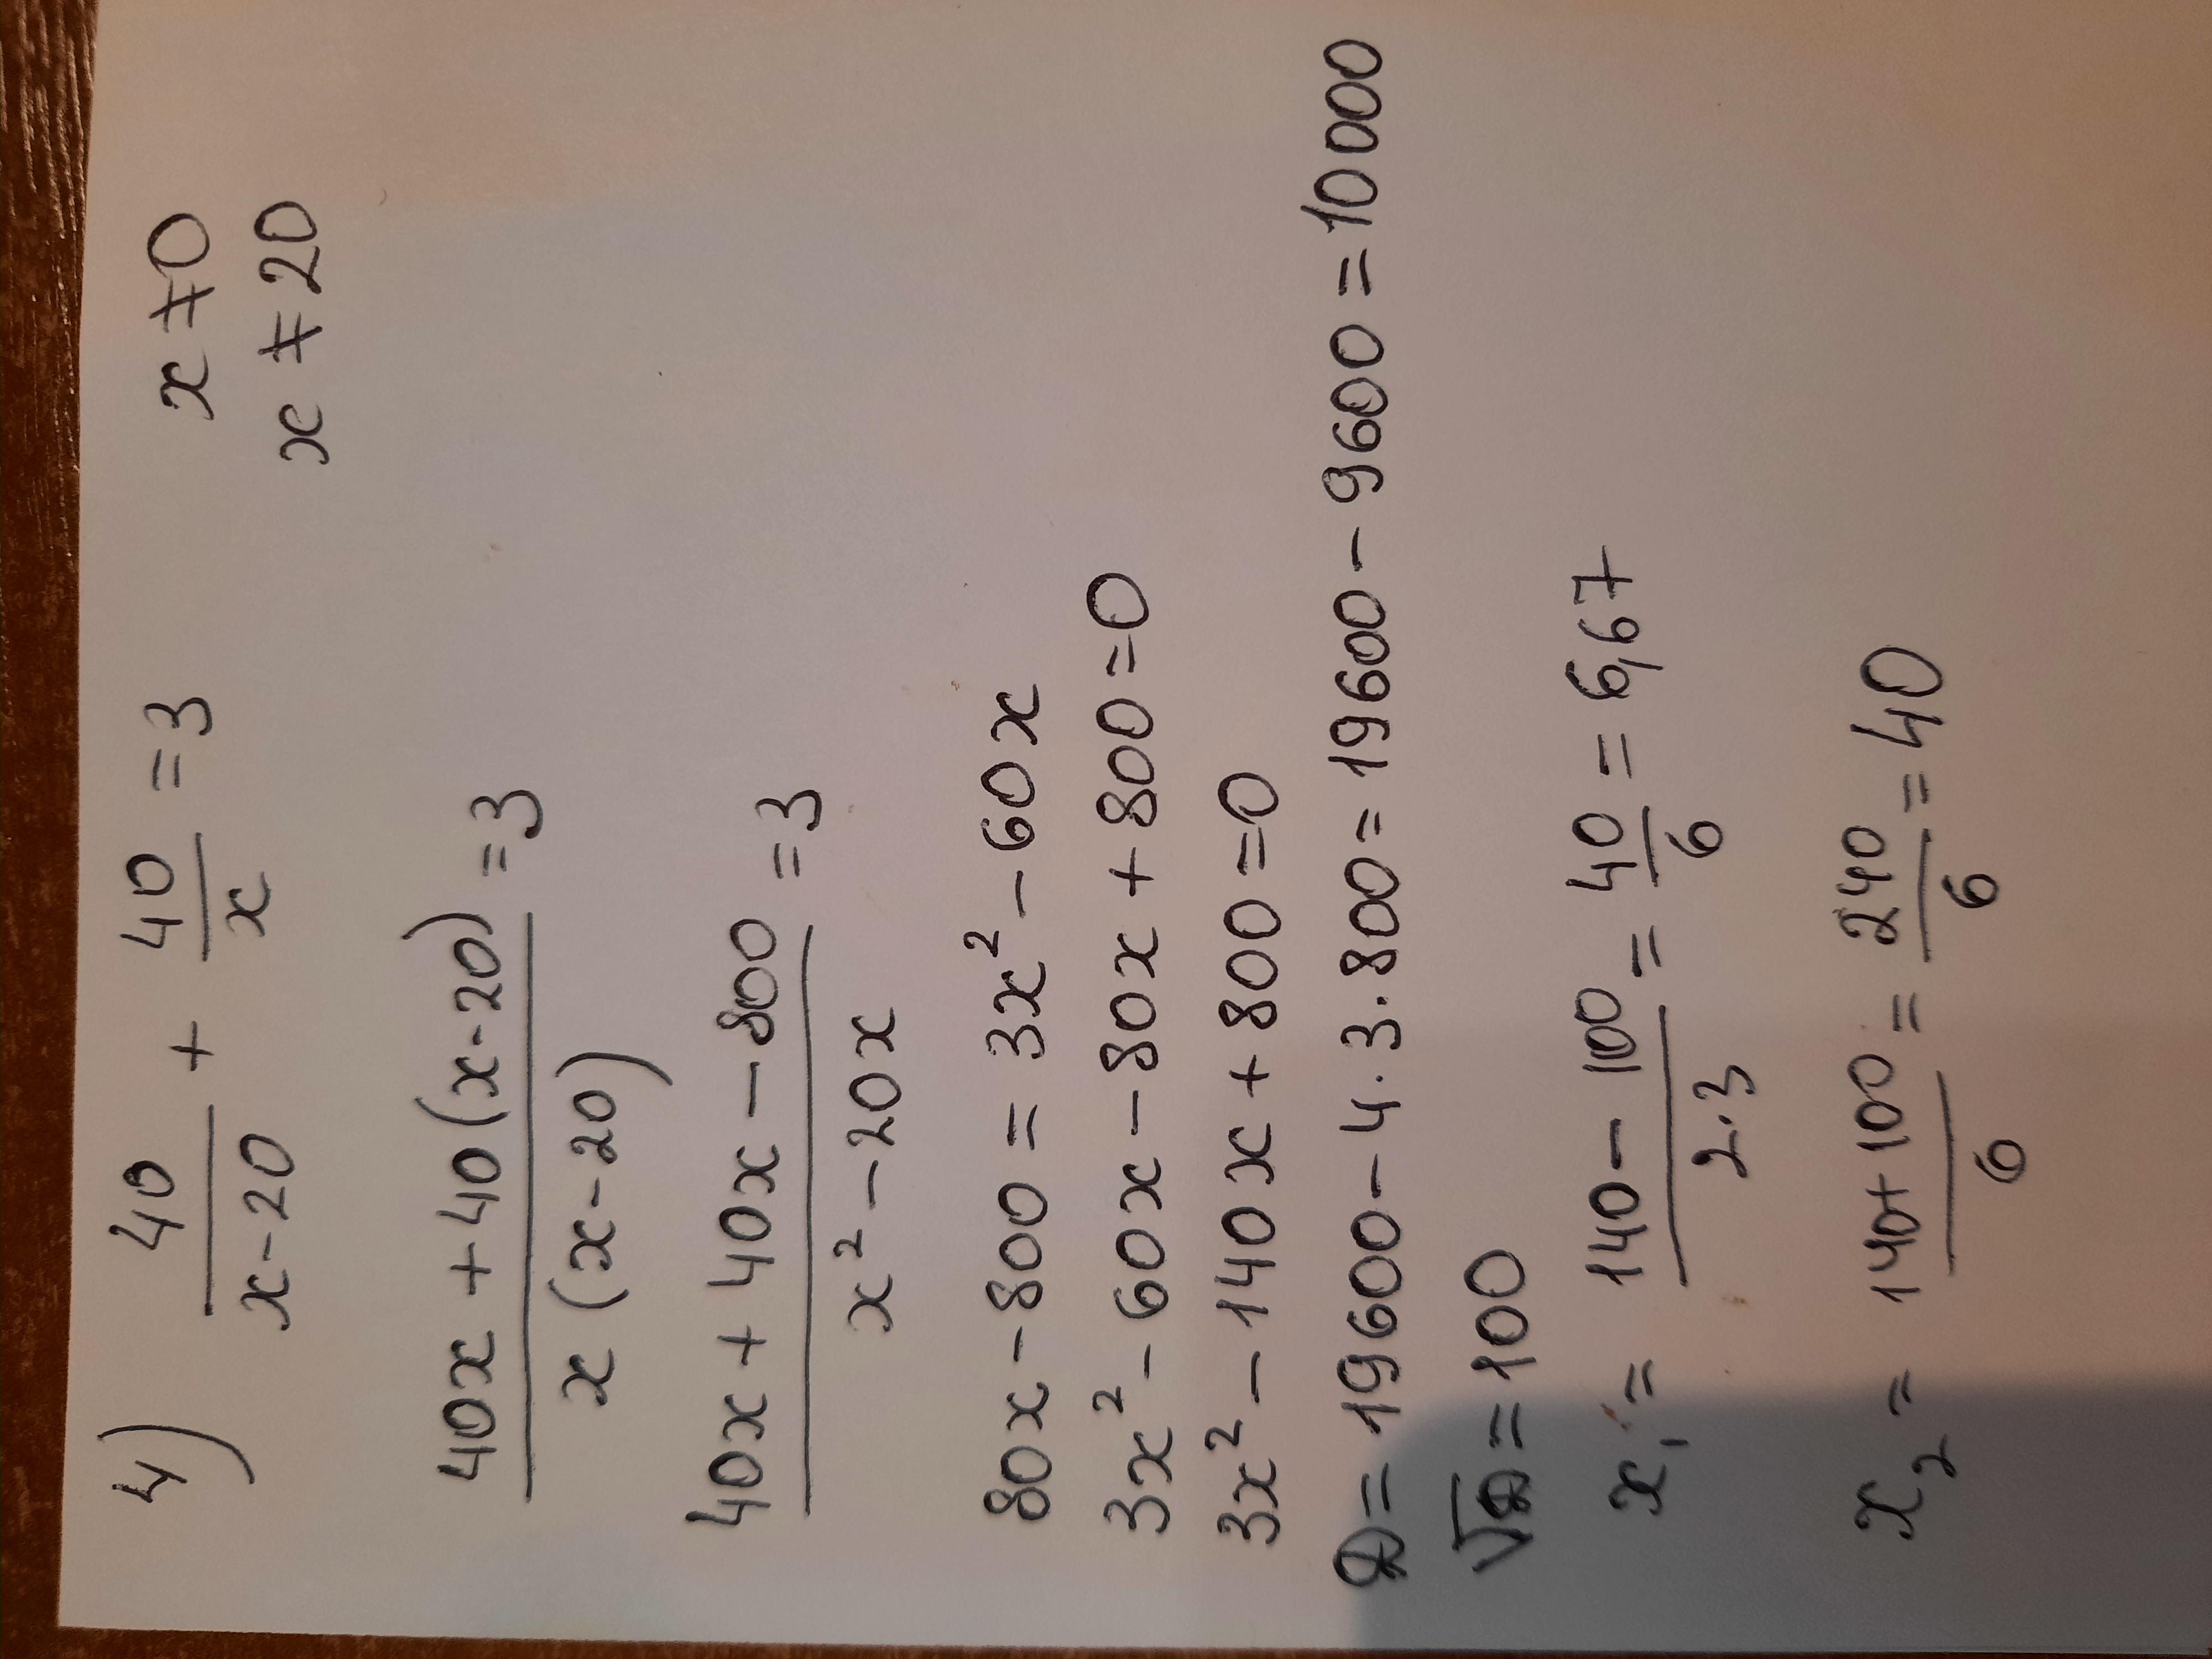 4) 40/(x-20) + 40/x = 3    x ≠ 0
x ≠ 20
(40x + 40(x-20))/(x(x-20)) = 3
(40x + 40x - 800)/(x² - 20x) = 3
80x - 800 = 3x² - 60x
3x² - 60x - 80x + 800 = 0
3x² - 140x + 800 = 0
D = 19600 - 4·3·800 = 19600 - 9600 = 10000
√D = 100
x₁ = (140 - 100)/(2·3) = 40/6 = 6,67
x₂ = (140 + 100)/6 = 240/6 = 40